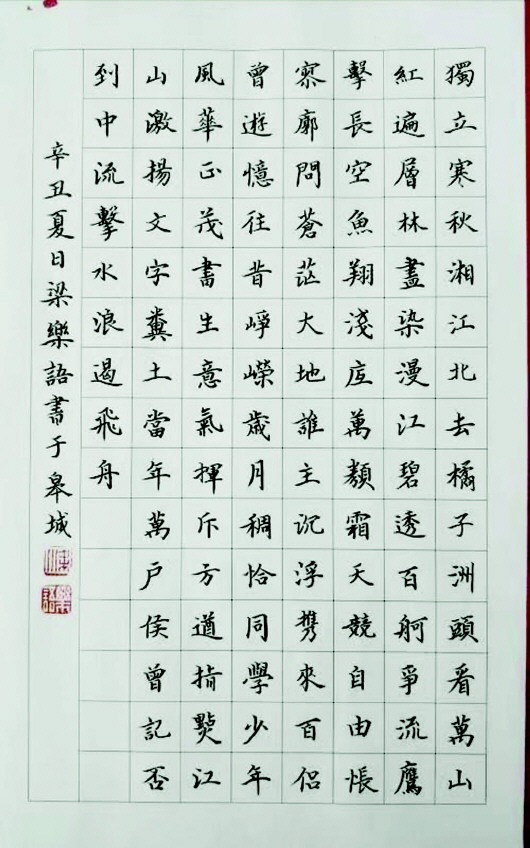 獨立寒秋湘江北去橘子洲頭看萬山
紅遍層林盡染漫江碧透百舸爭流鷹
擊長空魚翔淺底萬類霜天競自由悵
寥廓問蒼茫大地誰主沉浮携來百侣
曾遊憶往昔崢嶸歲月稠恰同學少年
風華正茂書生意氣揮斥方遒指點江
山激揚文字糞土當年萬户侯曾記否
到中流擊水浪遏飛舟
辛丑夏日梁樂語書于皋城